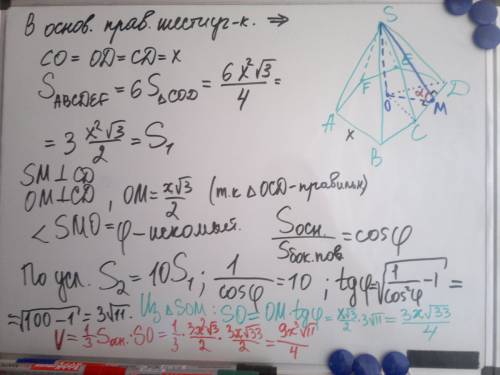 В основ. прав. шестиуг-к. ⇒
CO = OD = CD = x
S_ABCDEF = 6S_△COD = 6x²√3/4 =
= 3 x²√3/2 = S₁
SM⊥CD
OM⊥CD, OM = x√3/2 (т.к △OCD-правильн)
<SMO = φ - искомый. Sосн./Sбок.пов = cosφ
По усл. S₂ = 10S₁; 1/cosφ = 10; tgφ = √(1/cos²φ - 1) =
= √(100-1) = 3√11. Из △SOM: SO = OM·tgφ = x√3/2 · 3√11 = 3x√33/4
V = 1/3 Sосн·SO = 1/3 · 3x²√3/2 · 3x√33/2 = 9x³√11/4
S
F
E
D
A
O
M
x
C
B